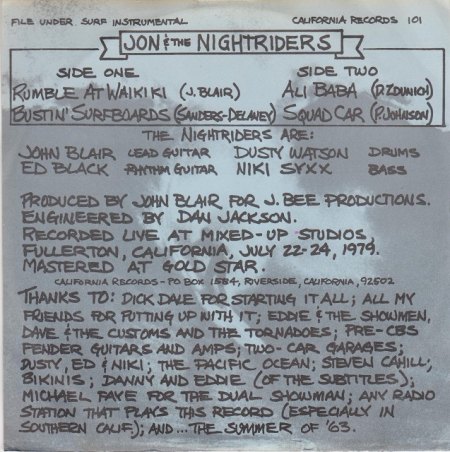 FILE UNDER SURF INSTRUMENTAL CALIFORNIA RECORDS 101
JON & THE NIGHTRIDERS
SIDE ONE SIDE TWO
RUMBLE AT WAIKIKI (J. BLAIR) ALI BABA (P. ZDUNICH)
BUSTIN' SURFBOARDS (SANDERS-DELANEY) SQUAD CAR (P. JOHNSON)
THE NIGHTRIDERS ARE:
JOHN BLAIR LEAD GUITAR DUSTY WATSON DRUMS
ED BLACK RHYTHM GUITAR NIKI SYXX BASS
PRODUCED BY JOHN BLAIR FOR J. BEE PRODUCTIONS.
ENGINEERED BY DAN JACKSON.
RECORDED LIVE AT MIXED-UP STUDIOS,
FULLERTON, CALIFORNIA, JULY 22-24, 1979.
MASTERED AT GOLD STAR.
CALIFORNIA RECORDS - PO BOX 1584, RIVERSIDE, CALIFORNIA, 92502
THANKS TO: DICK DALE FOR STARTING IT ALL; ALL MY
FRIENDS FOR PUTTING UP WITH IT; EDDIE & THE SHOWMEN,
DAVE & THE CUSTOMS AND THE TORNADOES; PRE-CBS
FENDER GUITARS AND AMPS; TWO-CAR GARAGES;
DUSTY, ED & NIKI; THE PACIFIC OCEAN; STEVEN CAHILL;
BIKINIS; DANNY AND EDDIE (OF THE SUBTITLES);
MICHAEL FAYE FOR THE DUAL SHOWMAN; ANY RADIO
STATION THAT PLAYS THIS RECORD (ESPECIALLY IN
SOUTHERN CALIF.); AND... THE SUMMER OF '63.